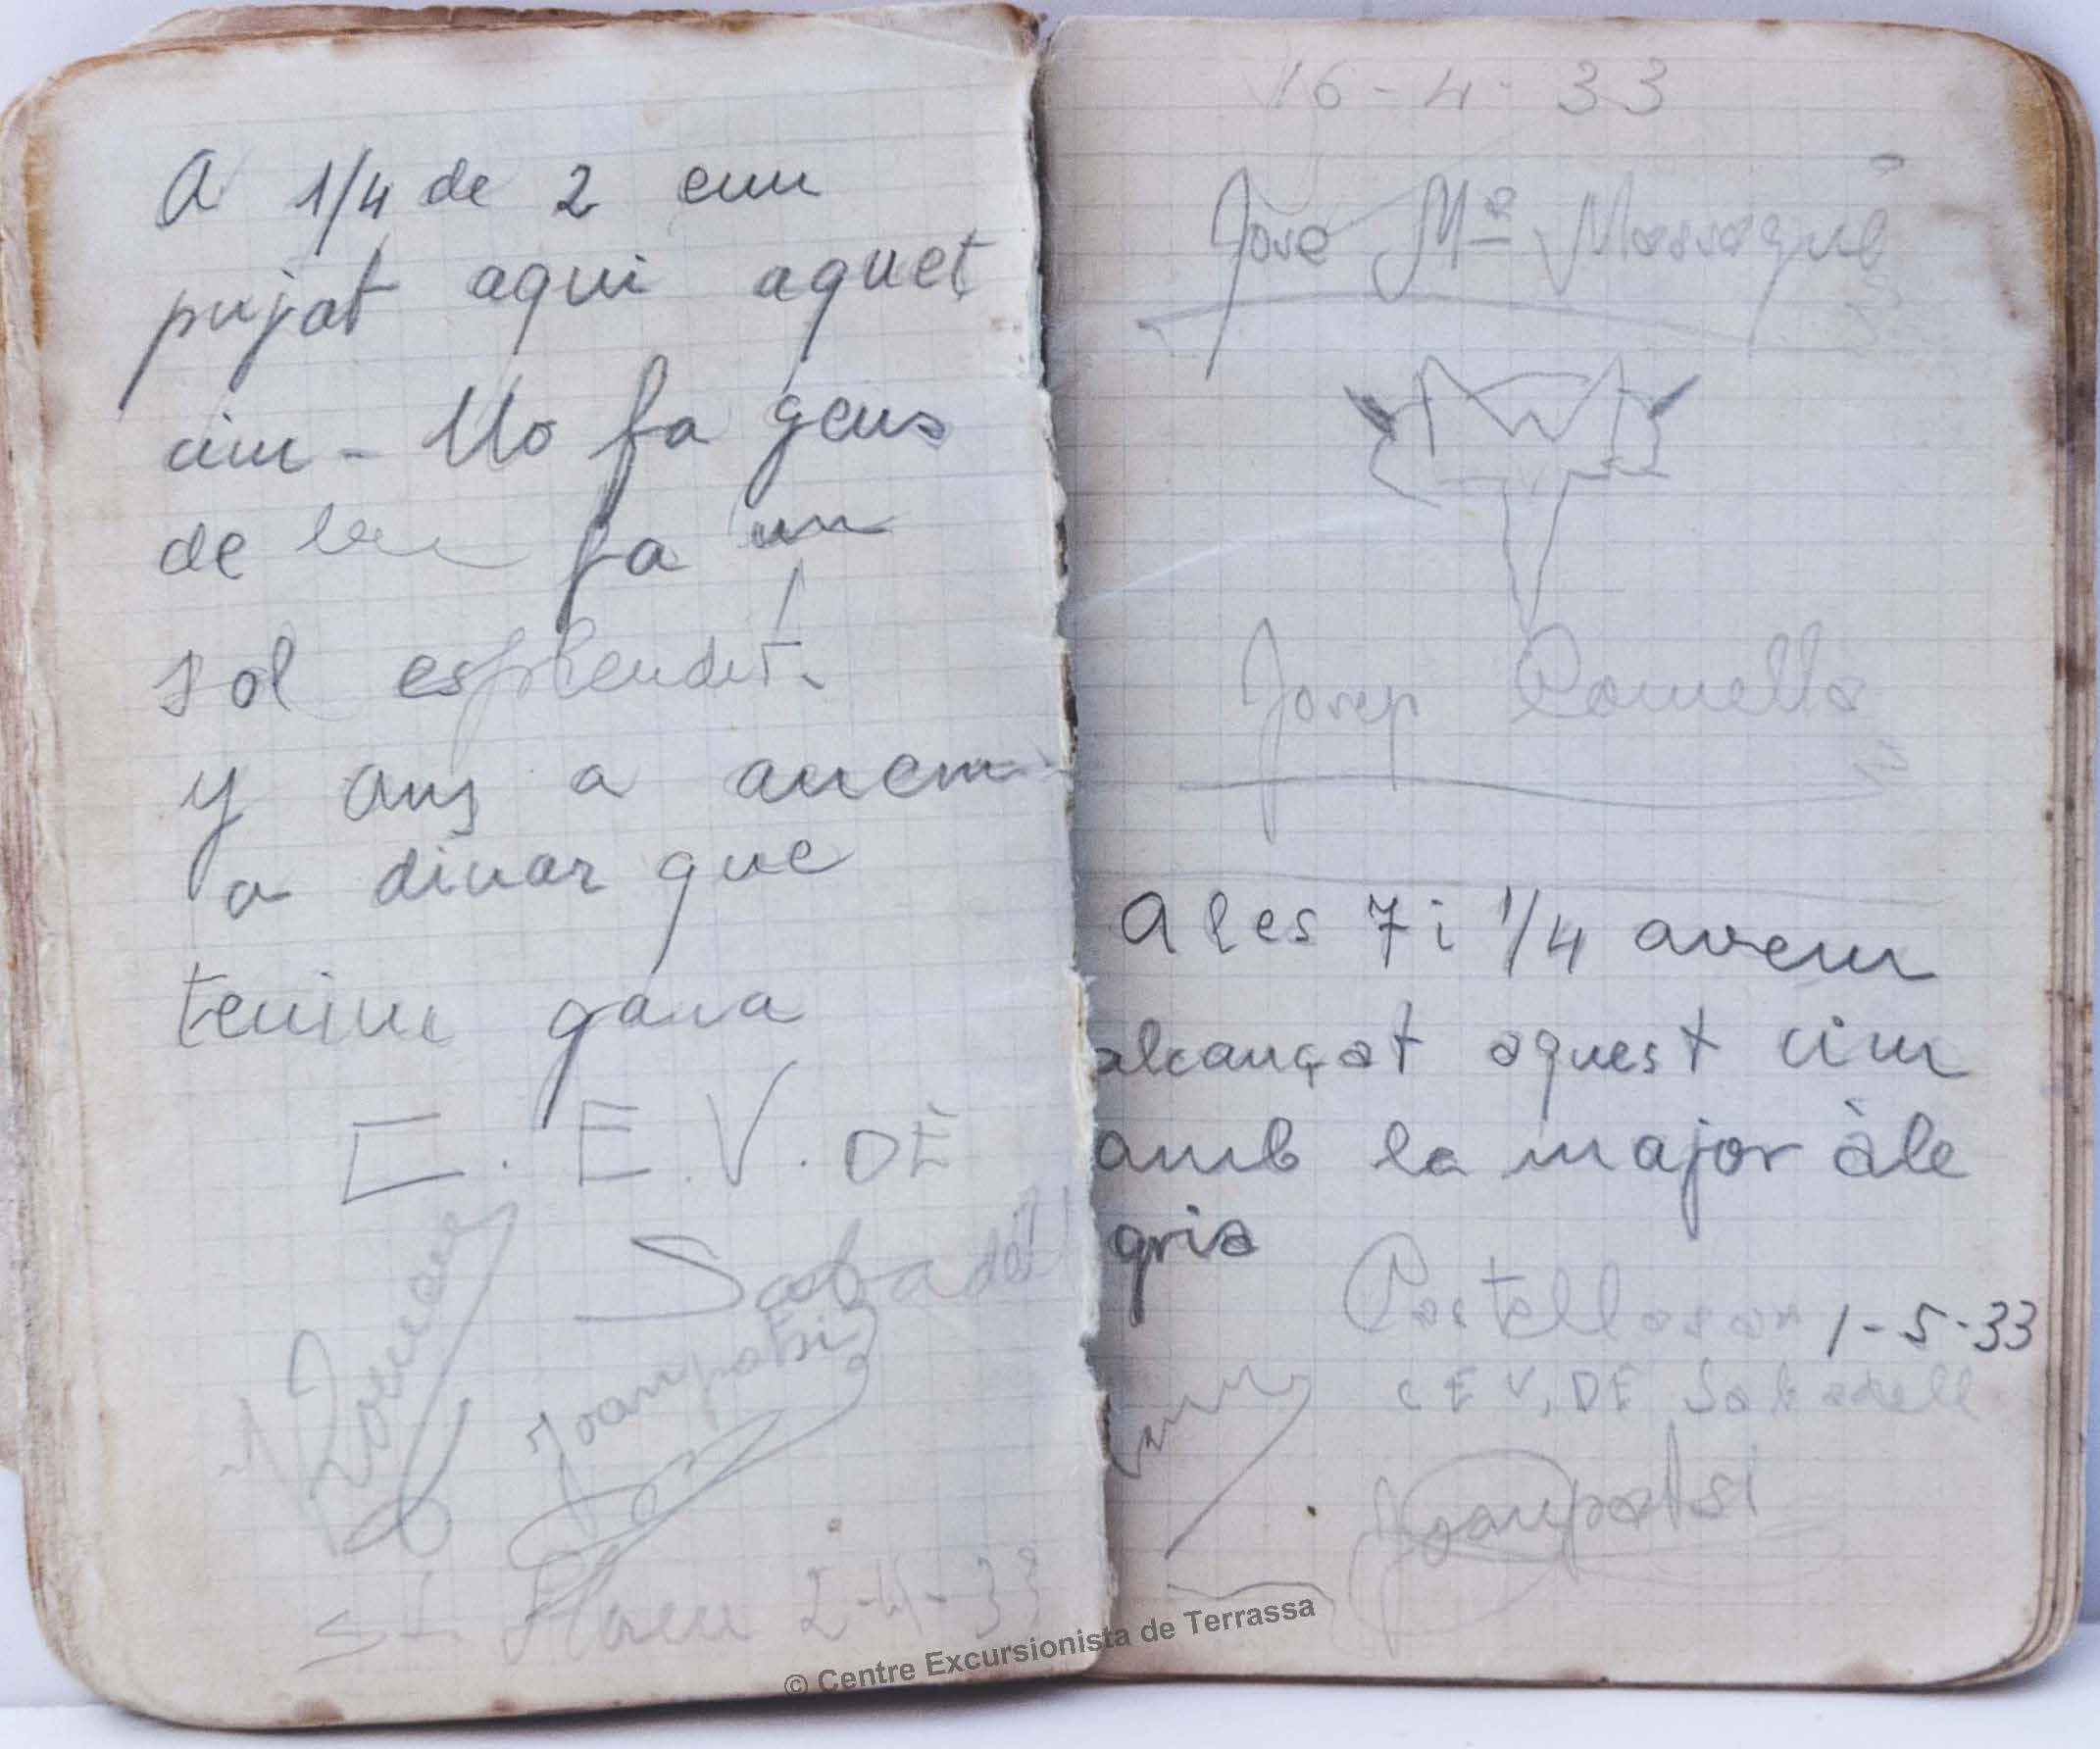 A 1/4 de 2 em
pujat aqui aquet
cim - No fa gens
de fa un
sol esplendit.
y ans a anem
a dinar que
tenim gana
C. E. V. DÈ
Sabadell
Joanpatsi
St 2-4-33
16-4-33
Jose Mª Massagué
Josep Comella
A les 7 i 1/4 avem
alcançat aquest cim
amb la major àle
gria
Castellasar 1-5-33
C E V. DE Sabadell
Joanpatsi
© Centre Excursionista de Terrassa